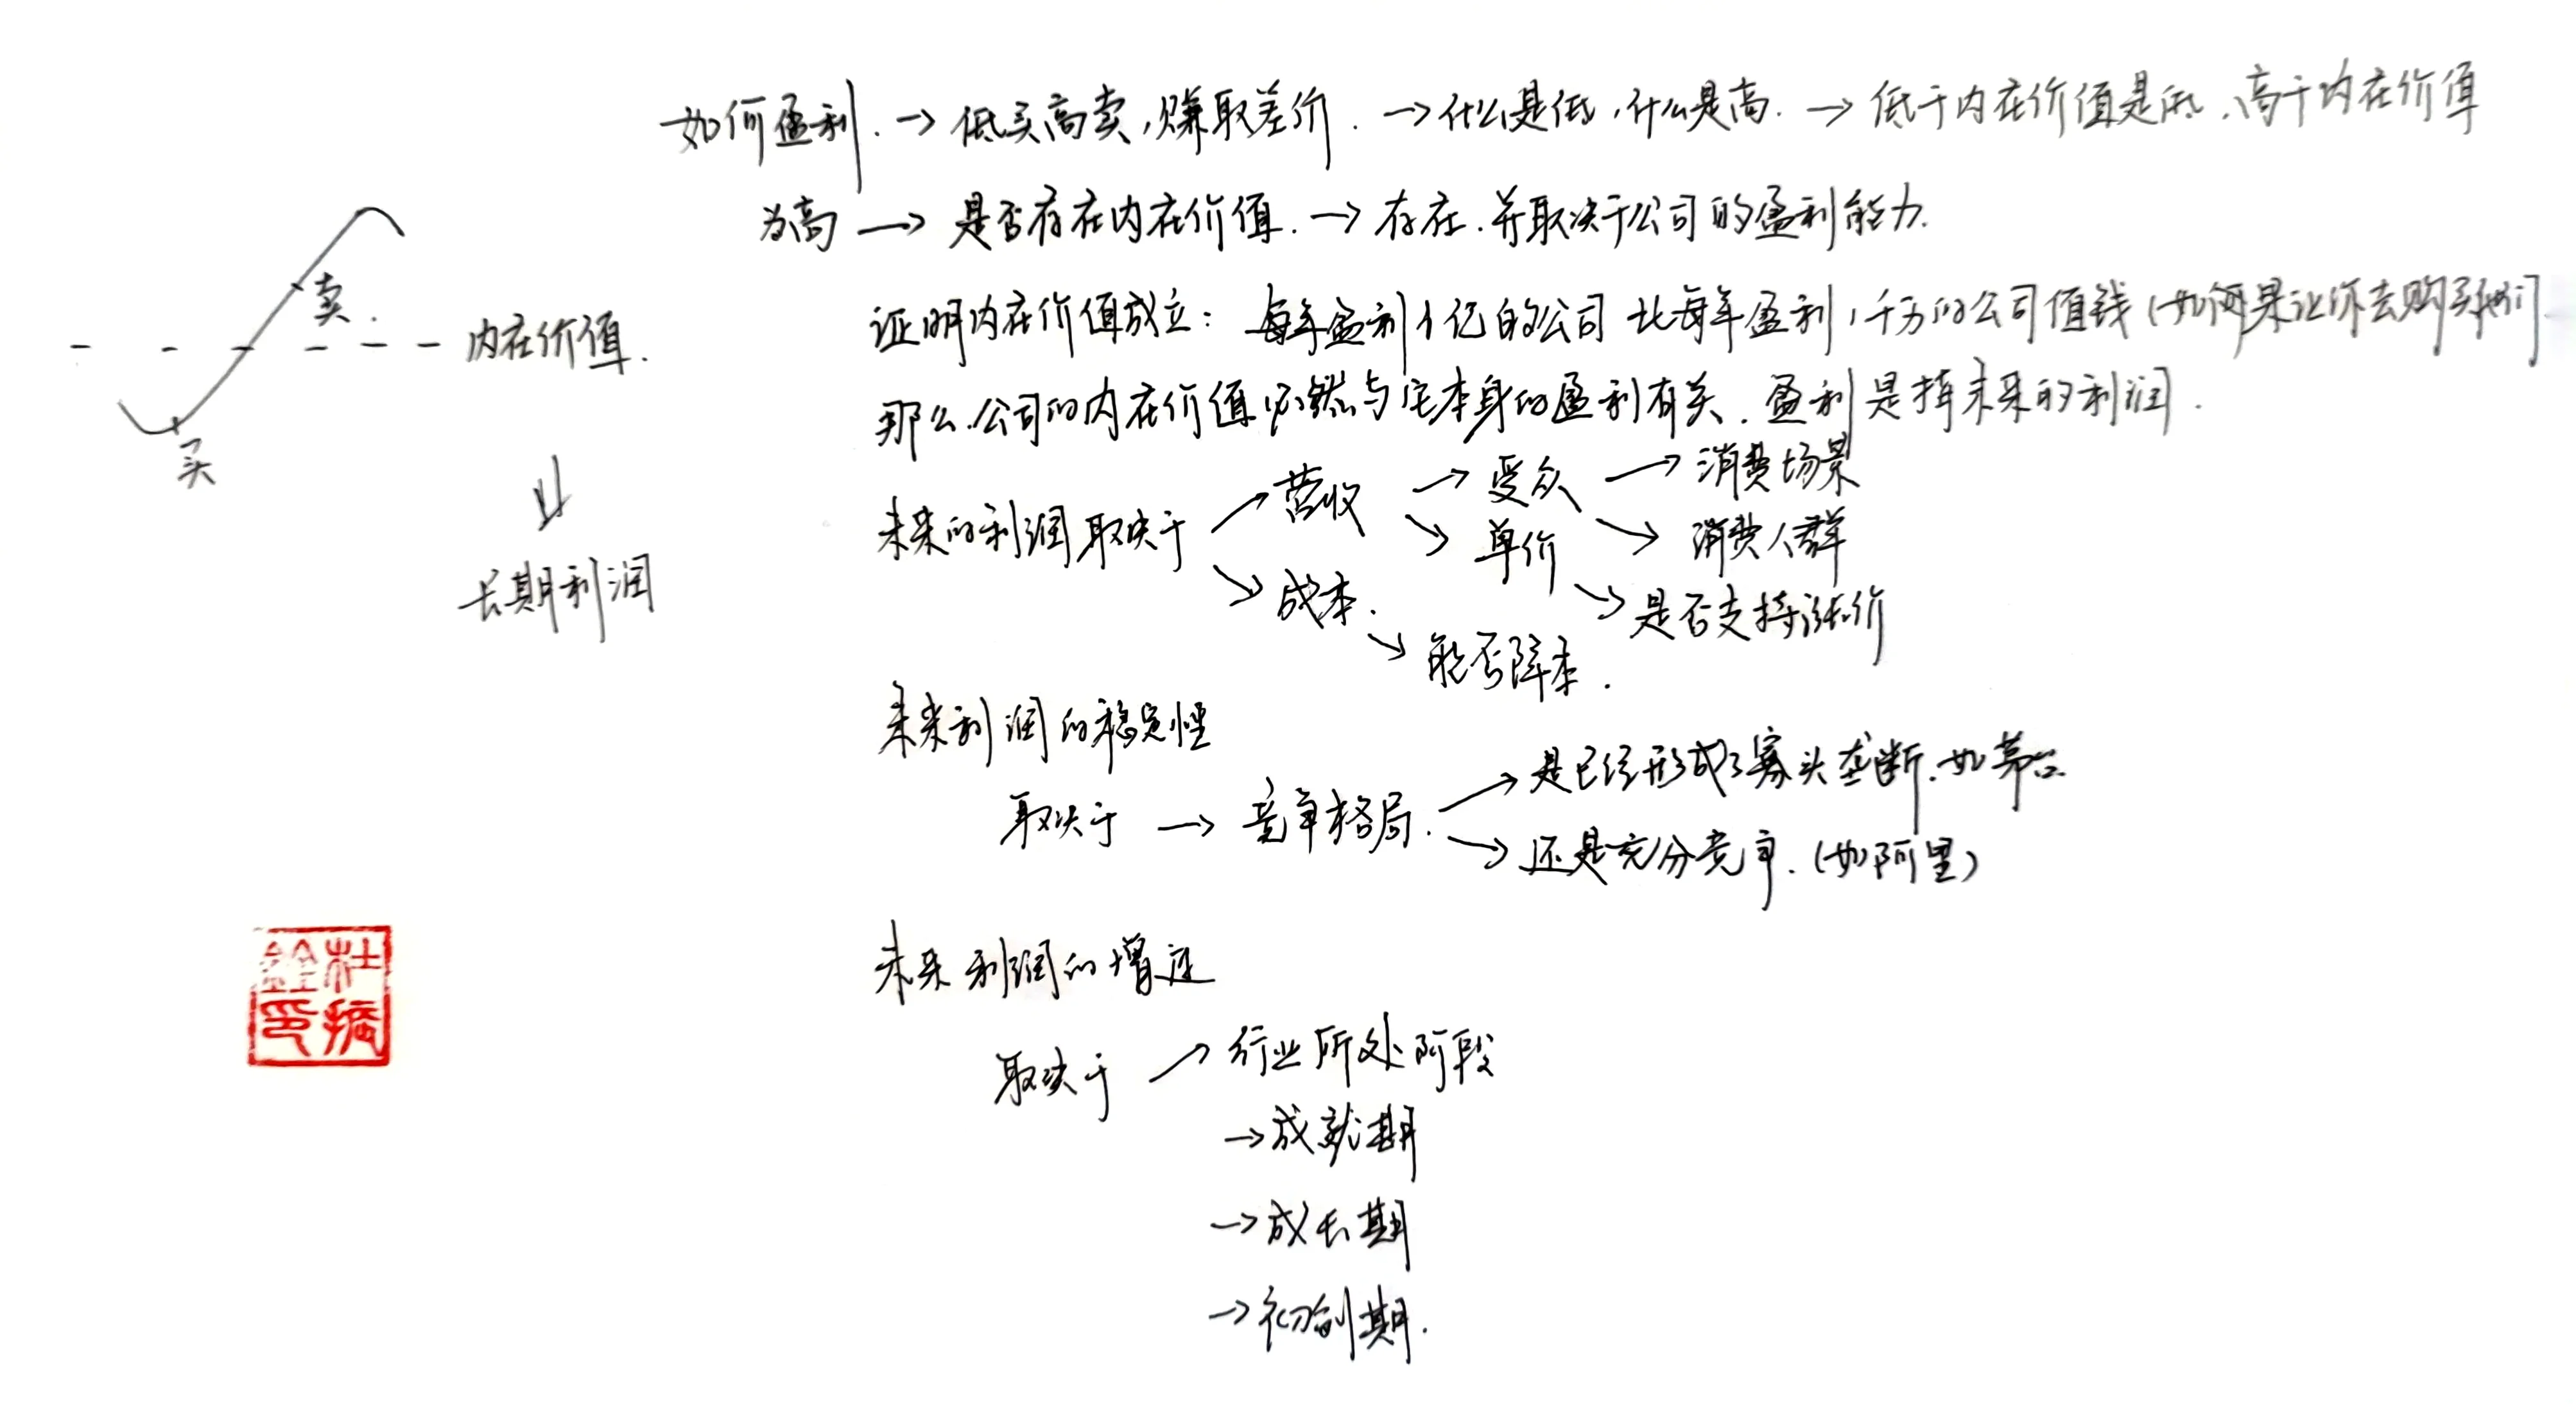 如何盈利. → 低买高卖,赚取差价. → 什么是低,什么是高. → 低于内在价值是低,高于内在价值
为高 → 是否存在内在价值. → 存在.并取决于公司的盈利能力.
证明内在价值成立: 每年盈利1亿的公司比每年盈利1千万的公司值钱(如果让你去购买他们
那么.公司的内在价值必然与它本身的盈利有关.盈利是指未来的利润.
卖.
内在价值.
买
长期利润
未来的利润取决于
营收 → 受众 → 消费场景
单价 消费人群
成本. 是否支持涨价
能否降本.
未来利润的稳定性
取决于 → 竞争格局.
是已经形成了寡头垄断.如茅台
还是充分竞争.(如阿里)
未来利润的增速
取决于 行业所处阶段
→成就期
→成长期
→初创期.
杜
銓
印